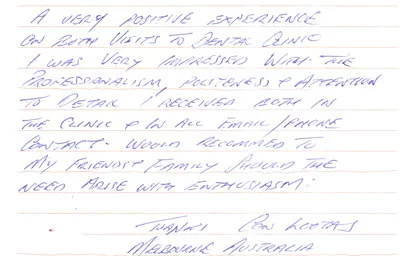 A VERY POSITIVE EXPERIENCE
ON BOTH VISITS TO DENTAL CLINIC
I WAS VERY IMPRESSED WITH THE
PROFESSIONALISM, POLITENESS & ATTENTION
TO DETAIL I RECEIVED BOTH IN
THE CLINIC & IN ALL EMAIL/PHONE
CONTACT. WOULD RECOMMED TO
MY FRIENDS & FAMILY SHOULD THE
NEED ARISE WITH ENTHUSIASM.
THANKS CON
MELBOURNE AUSTRALIA